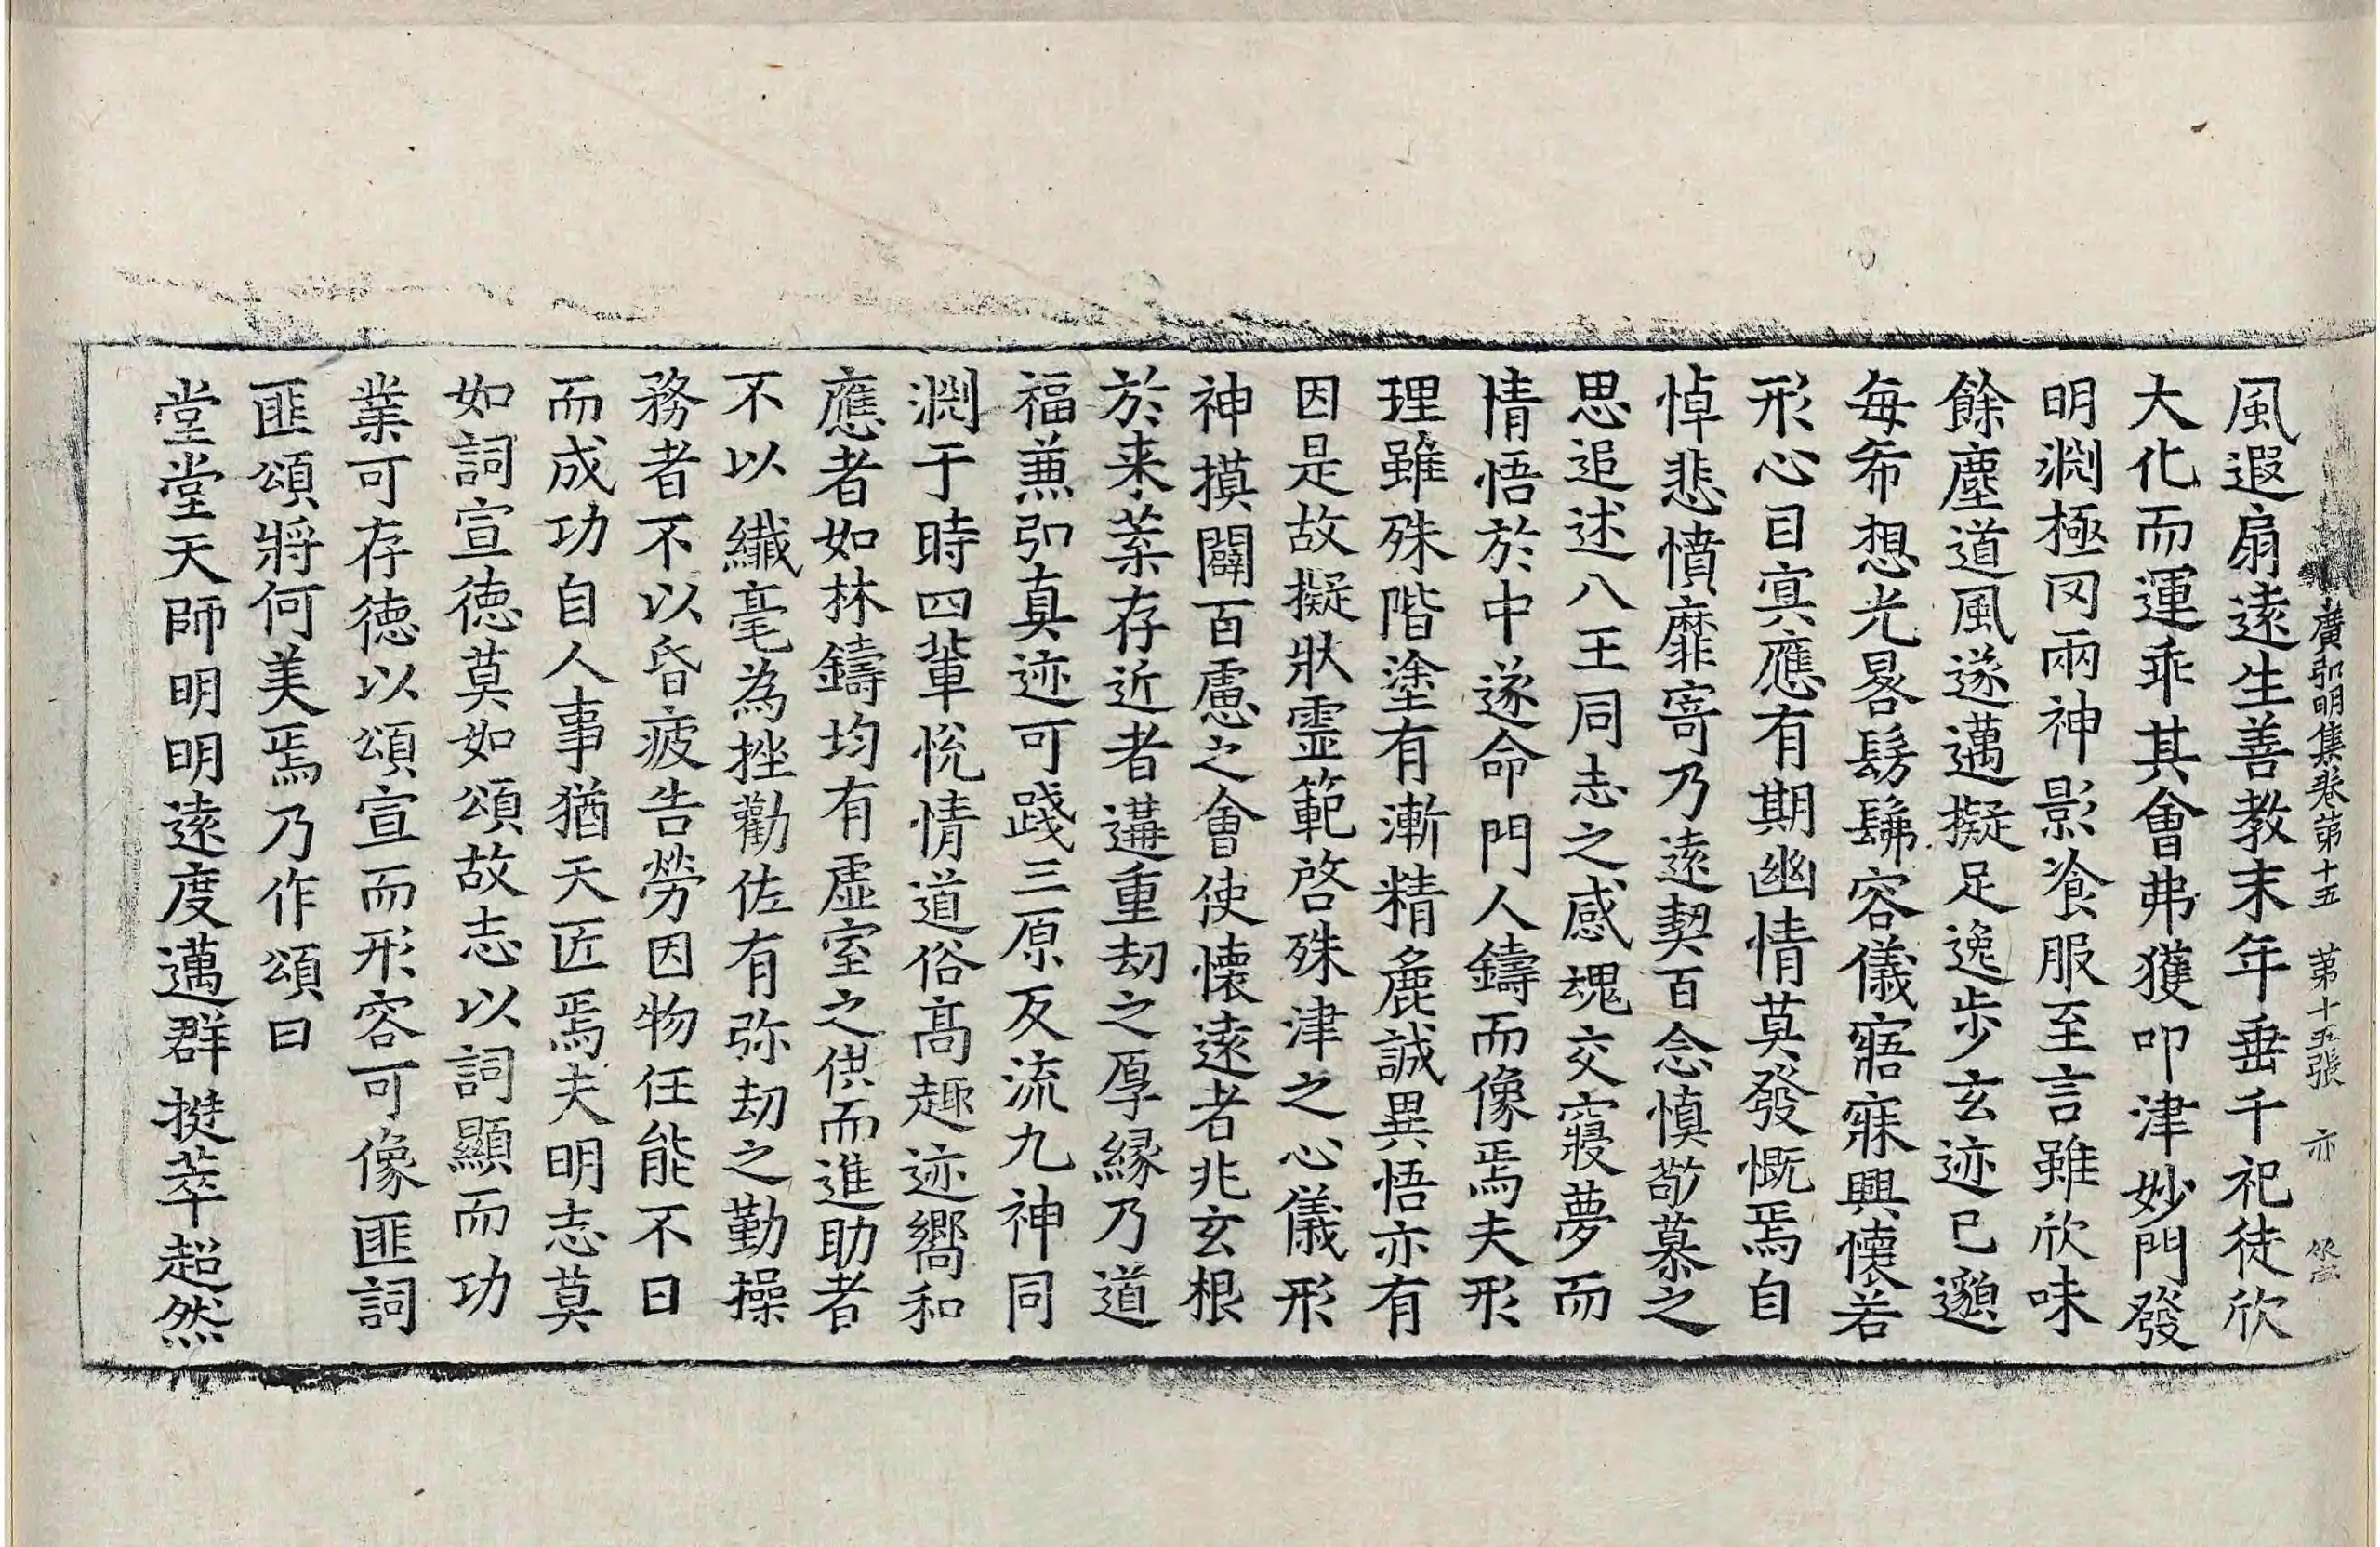 廣弘明集卷第十五　第十五張　亦
風遐扇遠生善教末年垂千祀徒欣
大化而運乖其會弗獲叩津妙門發
明淵極罔兩神影飡服至言雖欣味
餘塵道風遂邁擬足逸步玄迹已邈
每希想光晷髣髴容儀寤寐興懷若
形心目冥應有期幽情莫發慨焉自
悼悲憤靡寄乃遠契百念慎敬慕之
思追述八王同志之感魂交寢夢而
情悟於中遂命門人鑄而像焉夫形
理雖殊階塗有漸精麁誠異悟亦有
因是故擬狀靈範啓殊津之心儀形
神摸闢百慮之會使懷遠者兆玄根
於来葉存近者遘重劫之厚緣乃道
福兼弘真迹可踐三原反流九神同
淵于時四輩悅情道俗髙趣迹嚮和
應者如林鑄均有虛室之供而進助者
不以纎毫為挫勸佐有弥劫之勤操
務者不以昏疲告勞因物任能不日
而成功自人事猶天匠焉夫明志莫
如詞宣徳莫如頌故志以詞顯而功
業可存徳以頌宣而形容可像匪詞
匪頌將何美焉乃作頌曰
堂堂天師明明遠度邁群挺萃超然